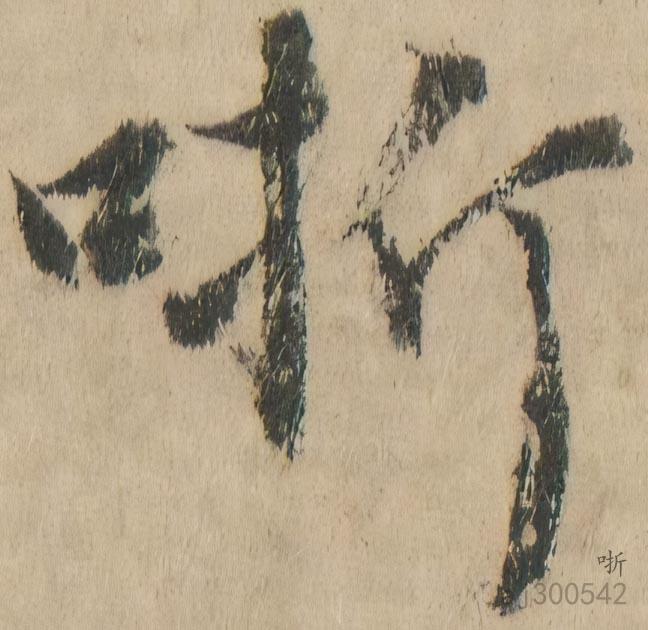 哳
哳
j300542